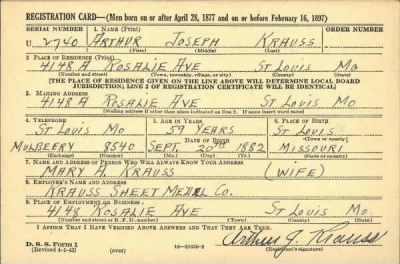 REGISTRATION CARD—(Men born on or after April 28, 1877 and on or before February 16, 1897)
SERIAL NUMBER 1. NAME (Print) ORDER NUMBER
U 2740 ARTHUR JOSEPH KRAUSS
(First) (Middle) (Last)
2. PLACE OF RESIDENCE (Print)
4148 A ROSALIE AVE ST LOUIS MO
(Number and street) (Town, township, village, or city) (County) (State)
[THE PLACE OF RESIDENCE GIVEN ON THE LINE ABOVE WILL DETERMINE LOCAL BOARD
JURISDICTION; LINE 2 OF REGISTRATION CERTIFICATE WILL BE IDENTICAL]
3. MAILING ADDRESS
4148 A ROSALIE AVE ST LOUIS MO
[Mailing address if other than place indicated on line 2. If same insert word same]
4. TELEPHONE 5. AGE IN YEARS 6. PLACE OF BIRTH
ST LOUIS MO 59 YEARS ST LOUIS
DATE OF BIRTH (Town or county)
MULBEERY 8540 SEPT. 20TH 1882 MISSOURI
(Exchange) (Number) (Mo.) (Day) (Yr.) (State or country)
7. NAME AND ADDRESS OF PERSON WHO WILL ALWAYS KNOW YOUR ADDRESS
MARY A. KRAUSS (WIFE)
8. EMPLOYER'S NAME AND ADDRESS
KRAUSS SHEET METAL CO.
9. PLACE OF EMPLOYMENT OR BUSINESS
4148 ROSALIE AVE ST LOUIS MO.
(Number and street or R. F. D. number) (Town) (County) (State)
I AFFIRM THAT I HAVE VERIFIED ABOVE ANSWERS AND THAT THEY ARE TRUE.
D. S. S. Form 1 Arthur J. Krauss
(Revised 4-1-42) (over) (Registrant's signature)